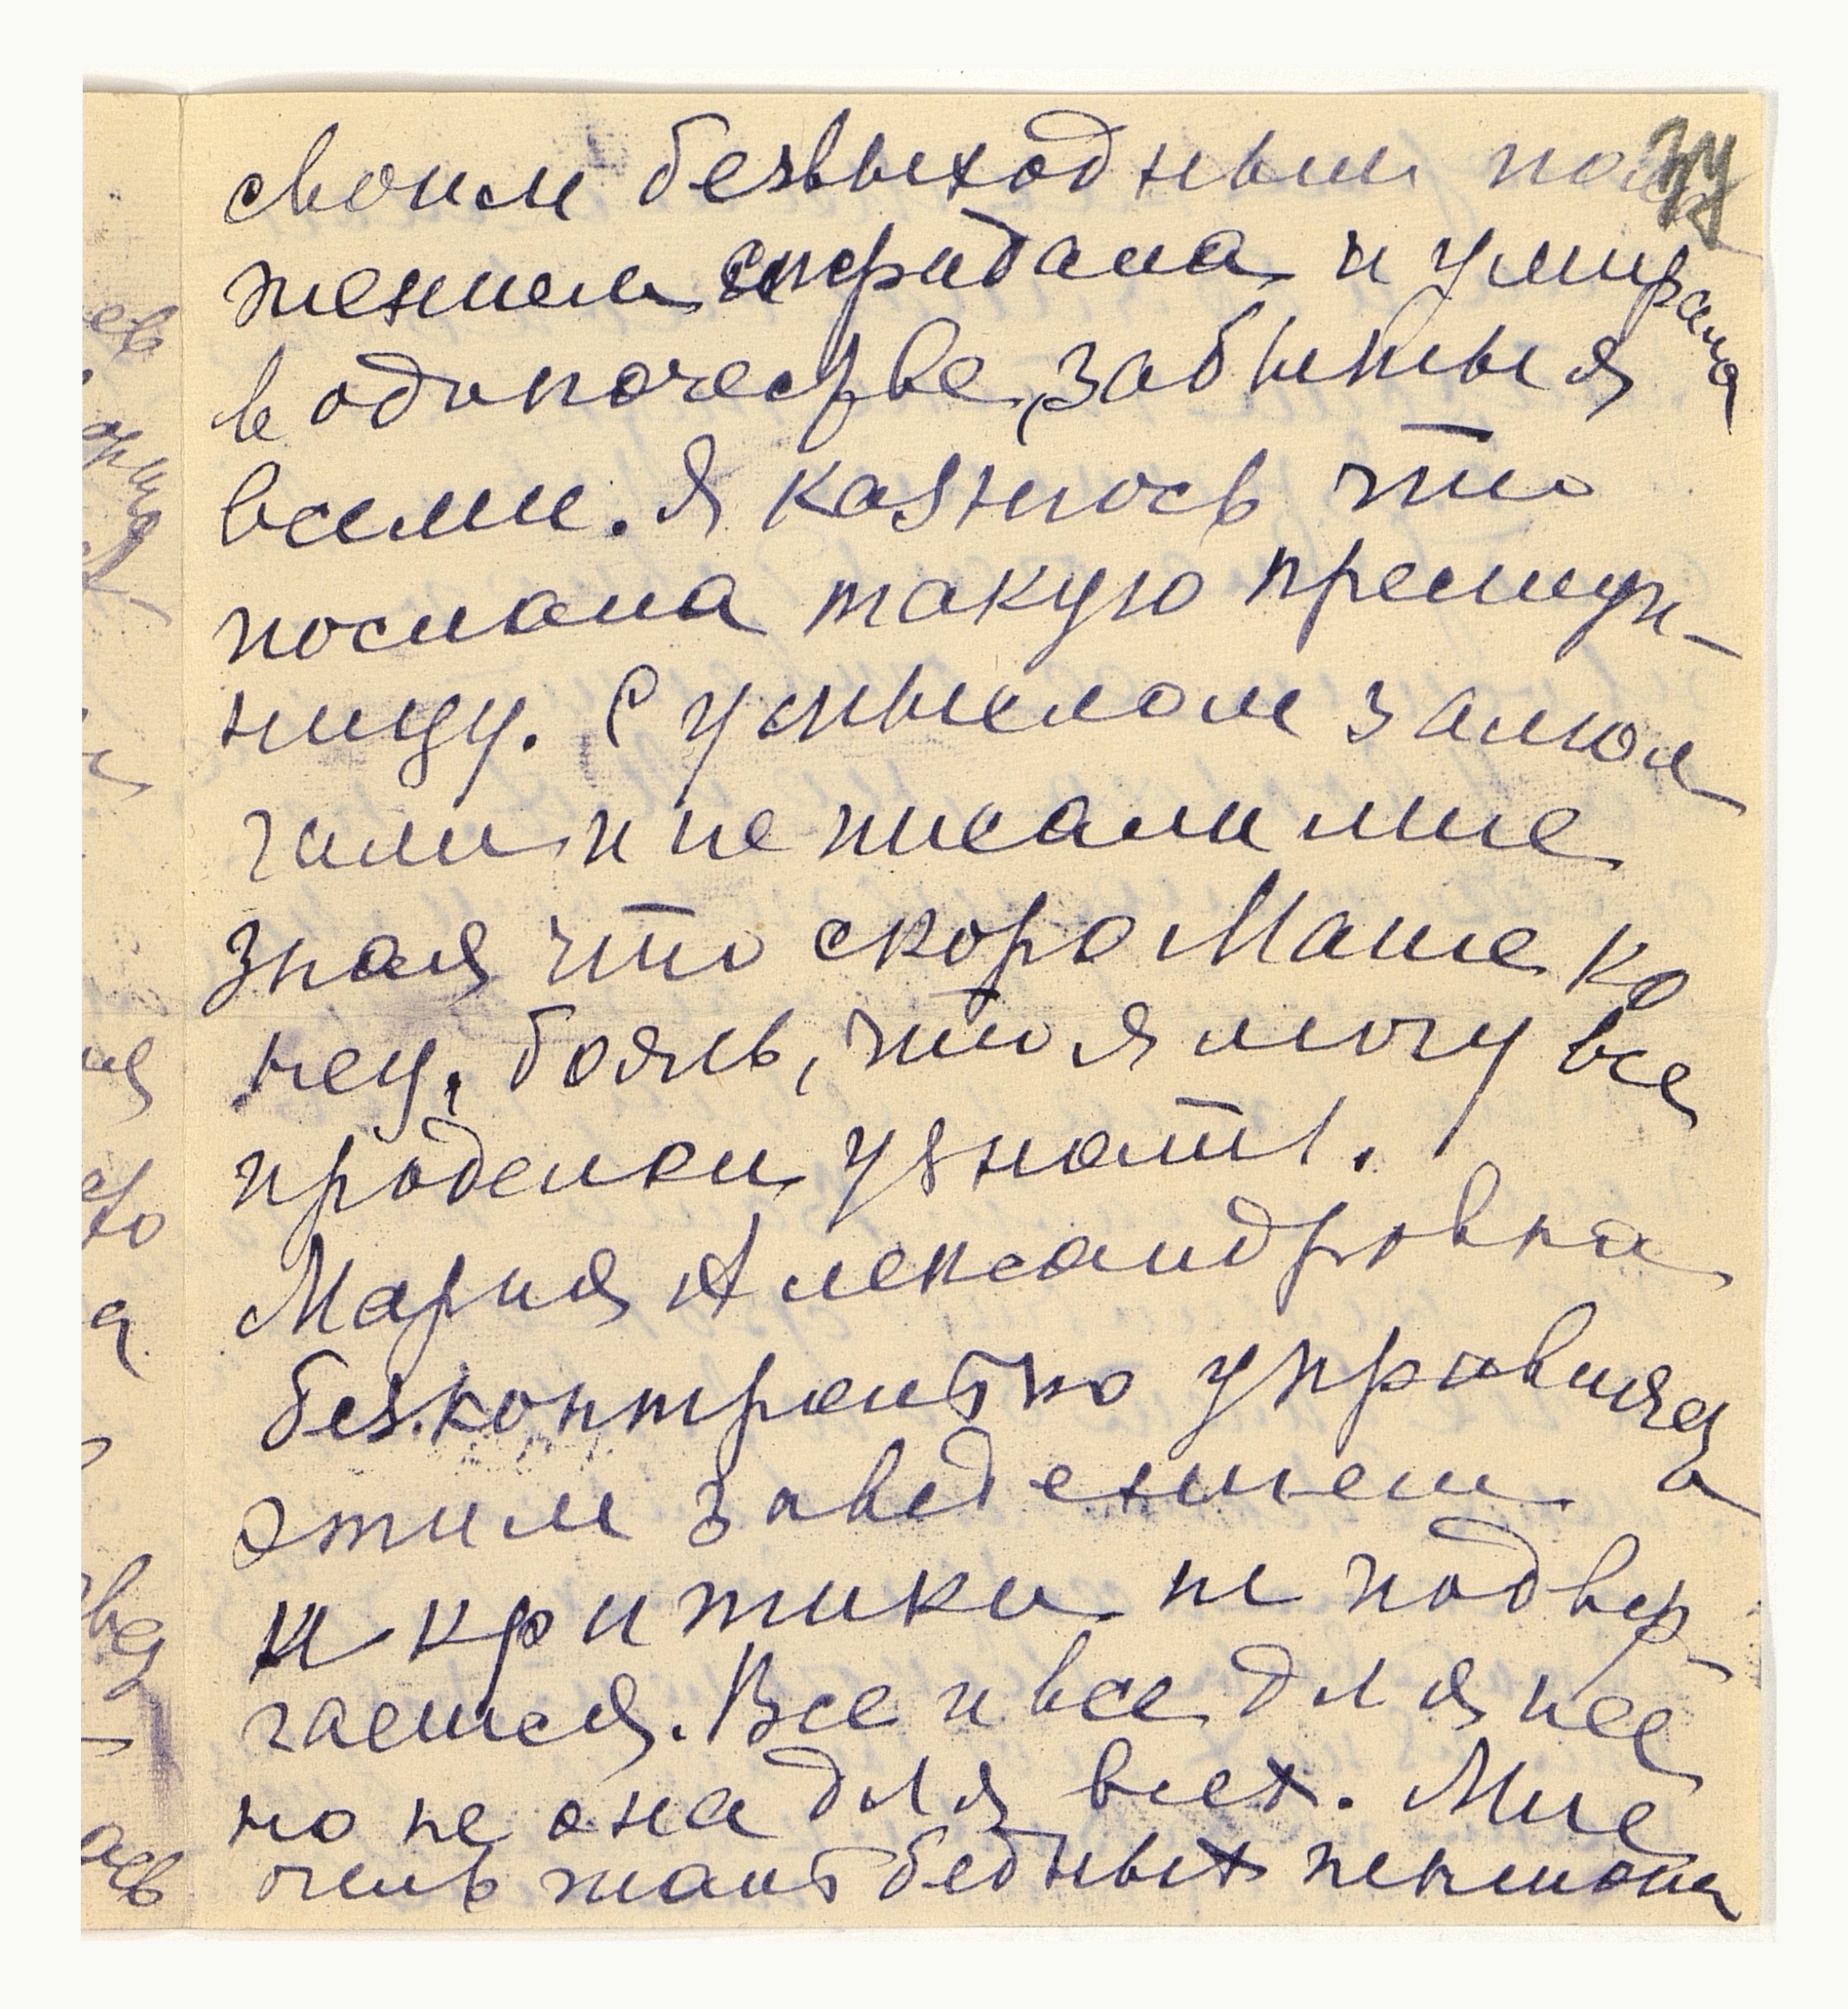 своим безвыходным поло
жением страдала и умирала
в одиночестве, забытыя
всеми. Я казнюсь что
послала такую преступ-
ницу. С умыслом замол
чали и не писали мне
зная что скоро Маше ко
нец, боялись, что я могу все
проделки узнать.
Мария Александровна
безконтрольно управляла
этим заведением
и критики не подвер-
гается. Все и все для нее
но не она для всех. Мне
очень жаль бедных пенсиона